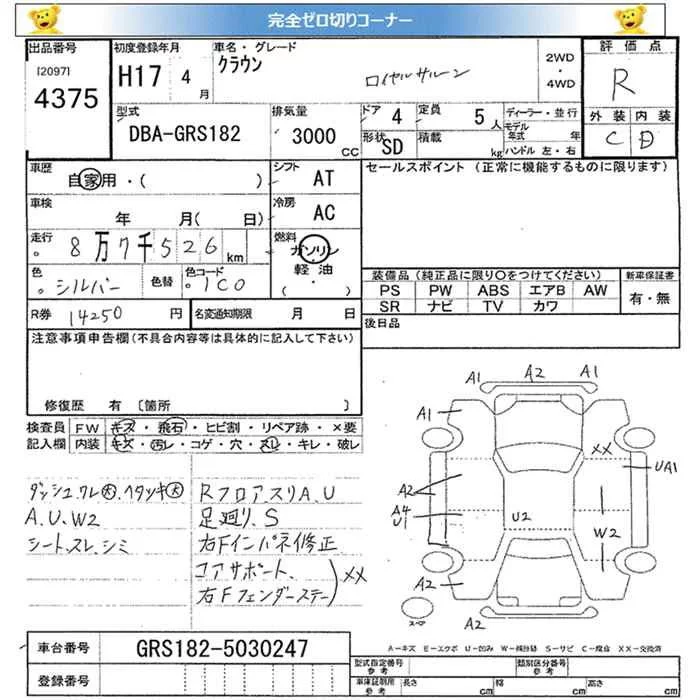 完全ゼロ切りコーナー
出品番号 初度登録年月 車名・グレード 評価点
[2097] H17 4月 クラウン ロイヤルサルーン 2WD・4WD R
4375
型式 排気量 ドア 4 定員 5人 ディーラー・並行 外装 内装
DBA-GRS182 3000CC 形状 SD 積載 kg モデル年式 年 C D
ハンドル 左・右
車歴 自家用・( ) シフト AT セールスポイント (正常に機能するものに限ります)
車検 年 月( 日) 冷房 AC
走行 8万7千526km 燃料 ガソリン・軽油( ・ )
色 シルバー 色替 色コード 1C0 装備品(純正品に限り○をつけてください) 新車保証書
PS PW ABS エアB AW 有・無
SR ナビ TV カワ
R券 14250円 名変通知期限 月 日 後日品
注意事項申告欄(不具合内容等は具体的に記入して下さい)
修復歴 有 〔箇所 〕
検査員 FW キズ・飛石・ヒビ割・リペア跡・×要
記入欄 内装 キズ・汚レ・コゲ・穴・スレ・キレ・破レ
ダッシュワレ大、ベタツキ大 Rフロアスリ A、U
A、U、W2 足廻り、S
シートスレ、シミ 右Fインパネ修正
コアサポート、
右Fフェンダーステー XX
A1 A2 A1
A1
XX
UA1
A2
A4
U1 U2 W2
A2
スペア A2
A-キズ E-エクボ U-凹み W-補修跡 S-サビ C-腐食 XX-交換済
車台番号 GRS182-5030247
登録番号
型式指定番号 参考 類別区分番号 参考
車庫証明用 参考 長さ cm 幅 cm 高さ cm